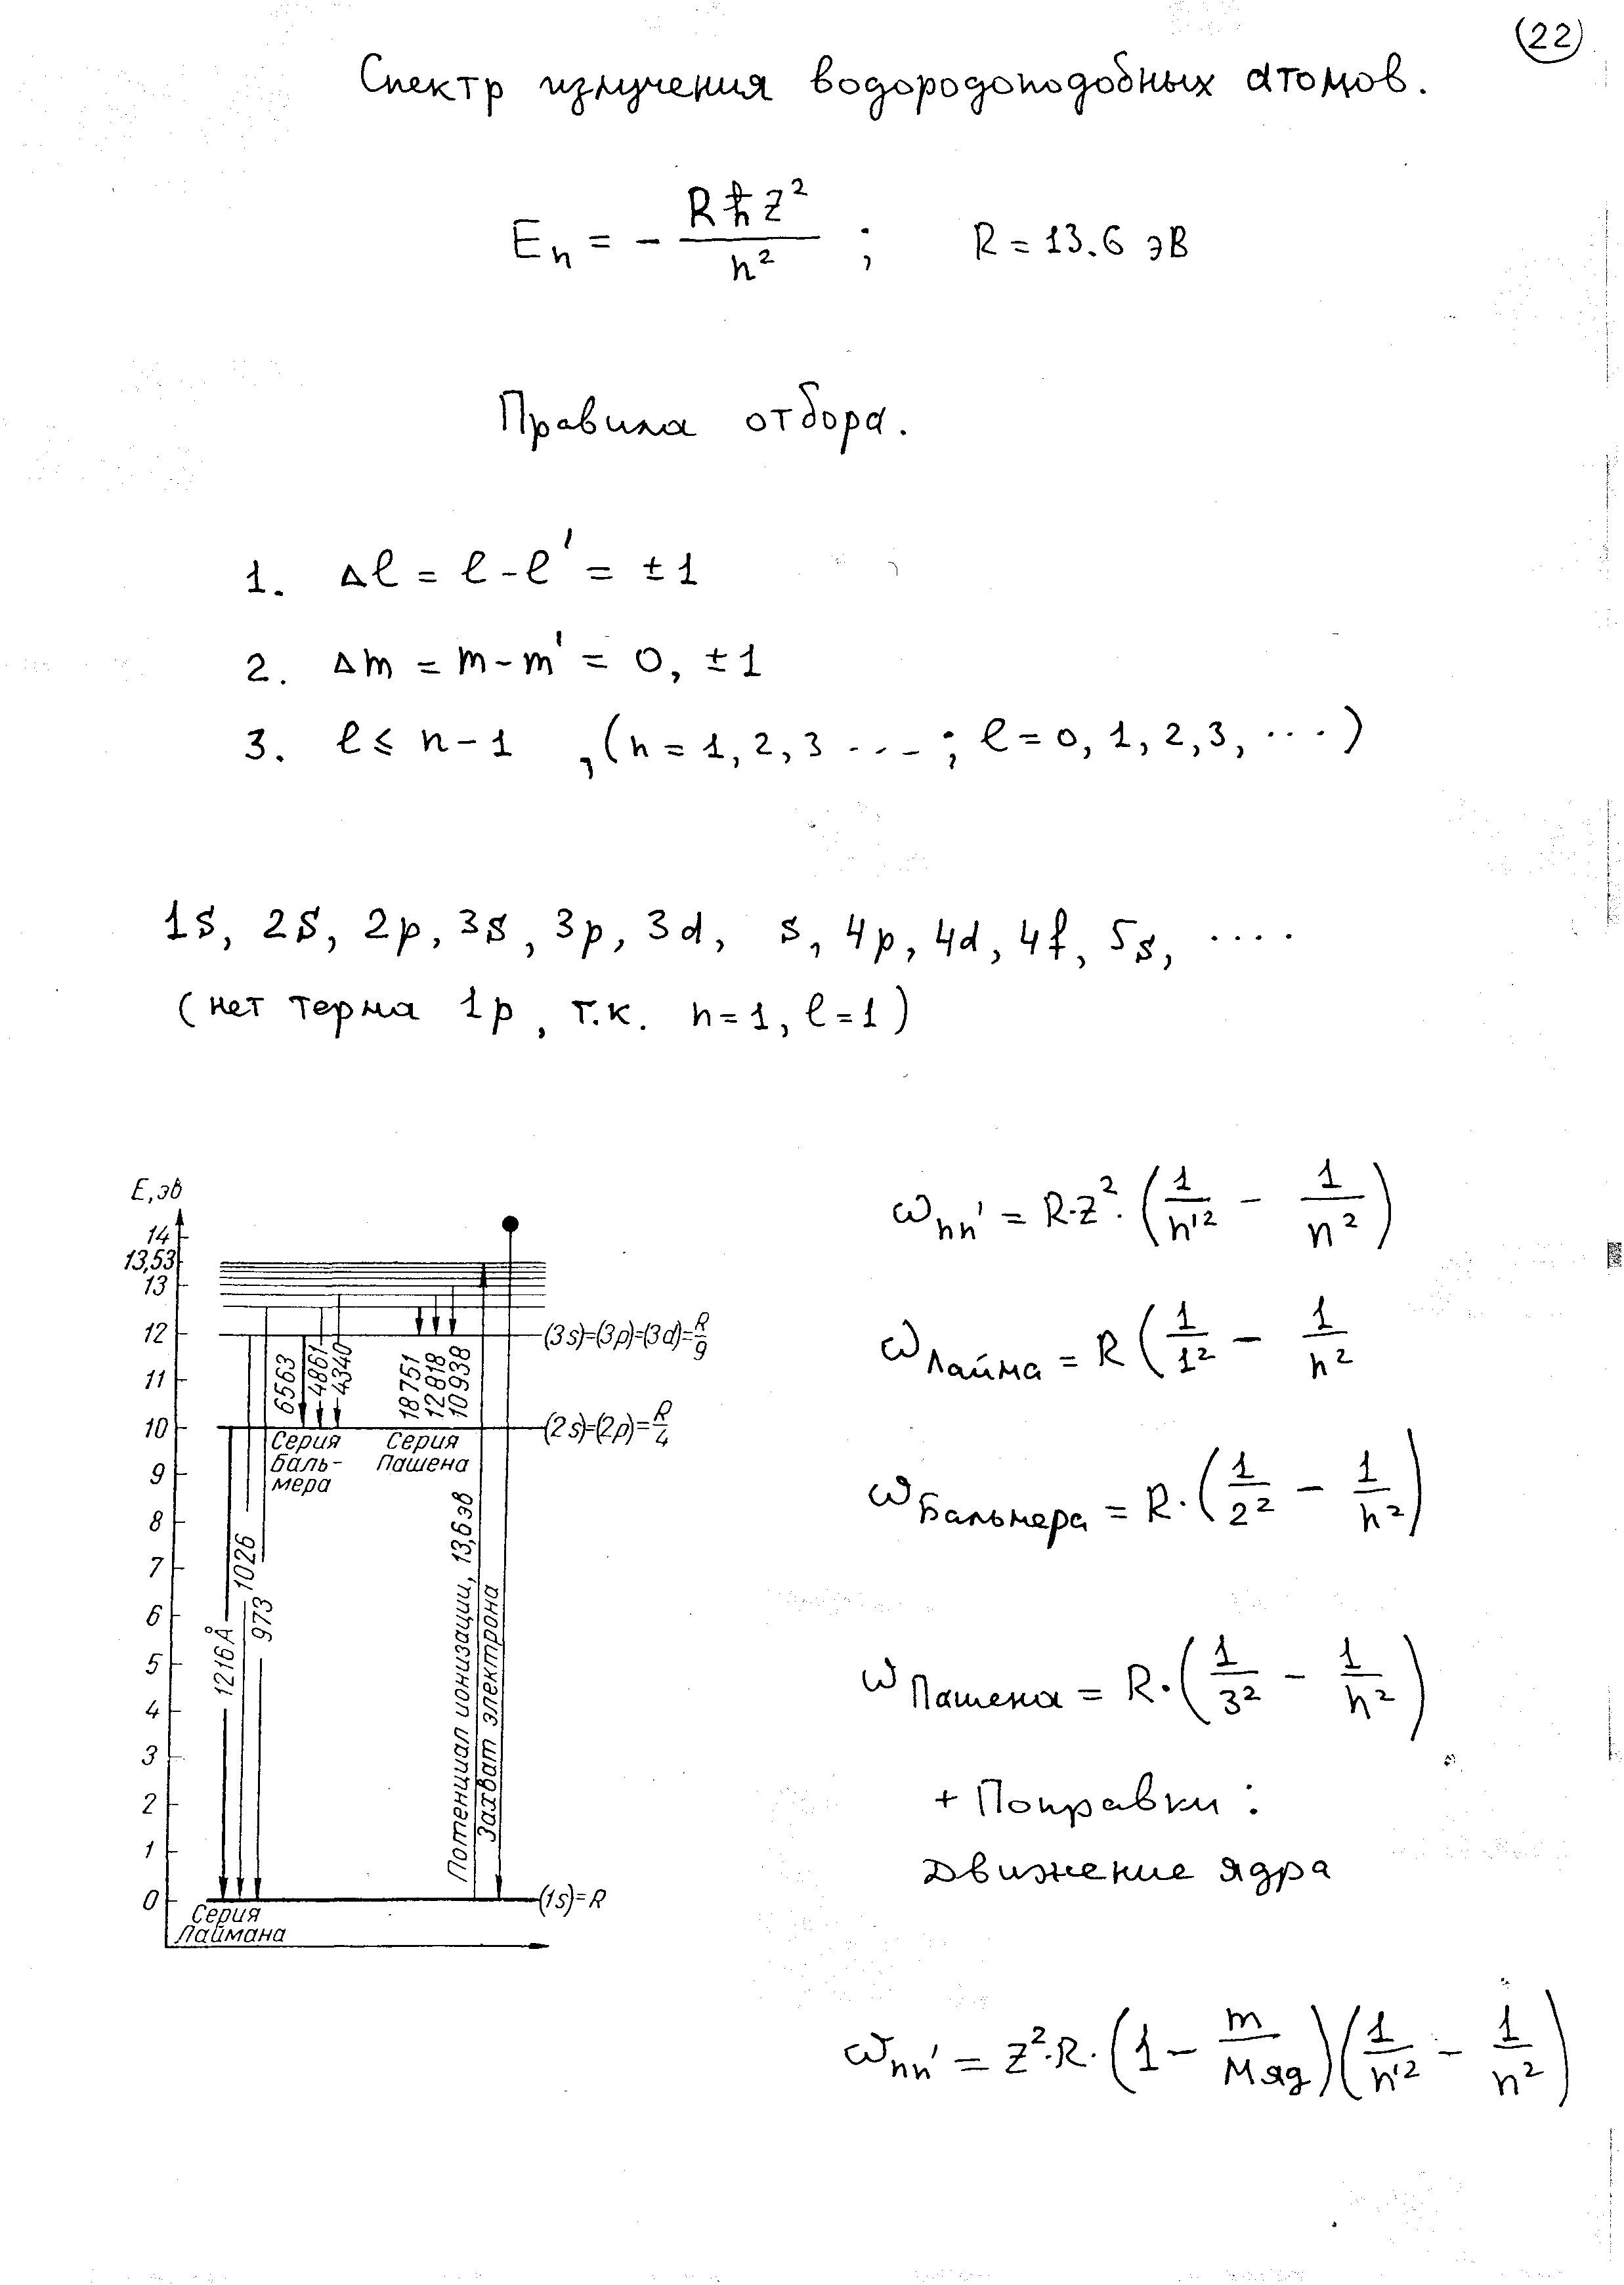 22
Спектр излучения водородоподобных атомов.
Eₙ = - RħZ²/n² ; R = 13.6 эВ
Правила отбора.
1. Δℓ = ℓ - ℓ' = ±1
2. Δm = m - m' = 0, ±1
3. ℓ ≤ n - 1 , (n = 1, 2, 3 ... ; ℓ = 0, 1, 2, 3, ...)
1s, 2s, 2p, 3s, 3p, 3d, s, 4p, 4d, 4f, 5s, ....
(нет терма 1p, т.к. n=1, ℓ=1)
E, эв
14
13,53
13
12
11
10
9
8
7
6
5
4
3
2
1
0
(3s)=(3p)=(3d)=R/9
(2s)=(2p)=R/4
(1s)=R
6563
4861
4340
18751
12818
10938
Серия
Баль-
мера
Серия
Пашена
1216Å
1026
973
Потенциал ионизации, 13,6 эв
Захват электрона
Серия
Лаймана
ωₙₙ' = R·Z²·(1/n'² - 1/n²)
ω Лайма = R (1/1² - 1/n²
ω Бальмера = R·(1/2² - 1/n²)
ω Пашена = R·(1/3² - 1/n²)
+ Поправки :
Движение ядра
ωₙₙ' = Z²·R·(1 - m/Mяд)(1/n'² - 1/n²)